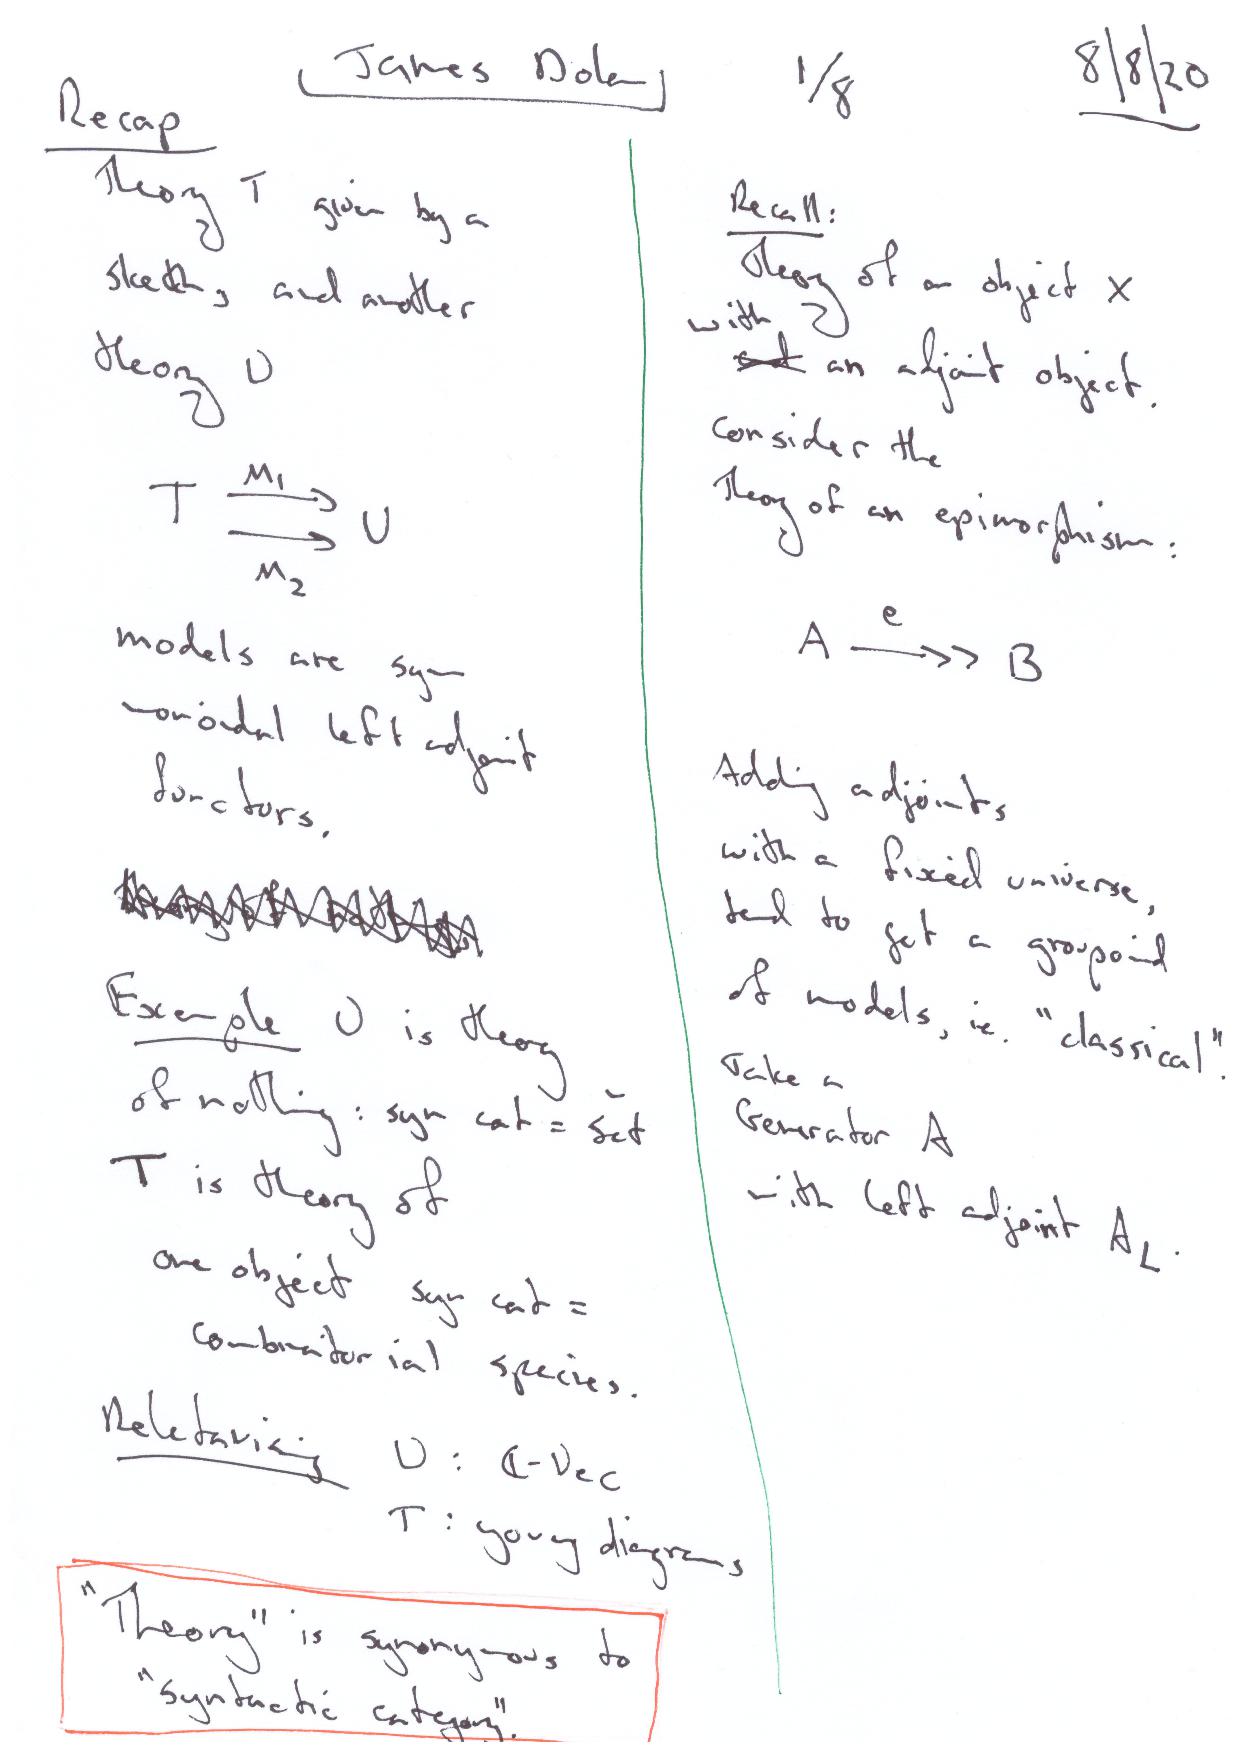 James Dolan
1/8
8/8/20
Recap
Theory T given by a
sketch, and another
theory U
T M1 U
M2
models are sym
monoidal left adjoint
functors.
Example U is theory
of nothing: syn cat = Set
T is theory of
one object syn cat =
combinatorial species.
Reletavising U: ℂ-Vec
T: young diagrams
"Theory" is synonymous to
"syntactic category".
Recall:
Theory of an object X
with
an adjoint object.
Consider the
Theory of an epimorphism:
e
A →→ B
Adding adjoints
with a fixed universe,
tend to get a groupoid
of models, ie. "classical".
Take a
Generator A
with left adjoint A_L.